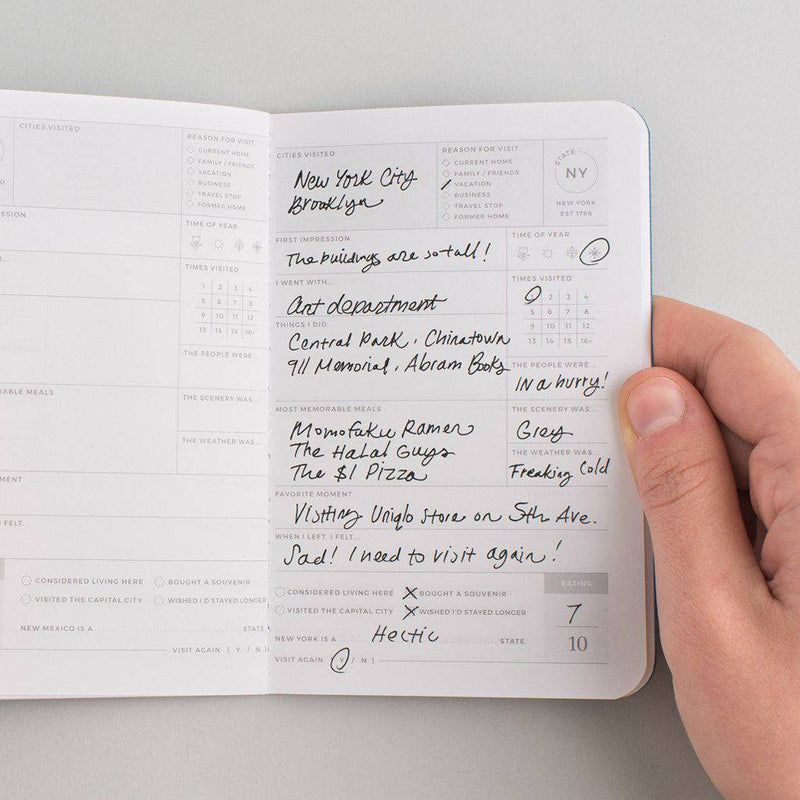 CITIES VISITED
REASON FOR VISIT
CURRENT HOME
FAMILY / FRIENDS
VACATION
BUSINESS
TRAVEL STOP
FORMER HOME
TIME OF YEAR
TIMES VISITED
1 2 3 4
5 6 7 8
9 10 11 12
13 14 15 16+
THE PEOPLE WERE...
MEMORABLE MEALS
THE SCENERY WAS...
THE WEATHER WAS...
FELT...
CONSIDERED LIVING HERE
BOUGHT A SOUVENIR
VISITED THE CAPITAL CITY
WISHED I'D STAYED LONGER
NEW MEXICO IS A STATE.
VISIT AGAIN [ Y / N ]
CITIES VISITED
New York City
Brooklyn
REASON FOR VISIT
CURRENT HOME
FAMILY / FRIENDS
VACATION
BUSINESS
TRAVEL STOP
FORMER HOME
STATE
NY
NEW YORK
EST 1788
FIRST IMPRESSION
The buildings are so tall!
TIME OF YEAR
I WENT WITH...
Art department
TIMES VISITED
1 2 3 4
5 6 7 8
9 10 11 12
13 14 15 16+
THINGS I DID
Central Park, Chinatown
911 Memorial, Abram Books
THE PEOPLE WERE...
IN a hurry!
MOST MEMORABLE MEALS
Momofuku Ramen
The Halal Guys
The $1 Pizza
THE SCENERY WAS...
Grey
THE WEATHER WAS...
Freaking Cold
FAVORITE MOMENT
Visiting Uniqlo store on 5th Ave.
WHEN I LEFT, I FELT...
Sad! I need to visit again!
CONSIDERED LIVING HERE
BOUGHT A SOUVENIR
VISITED THE CAPITAL CITY
WISHED I'D STAYED LONGER
RATING
7
10
NEW YORK IS A Hectic STATE.
VISIT AGAIN [ Y / N ]